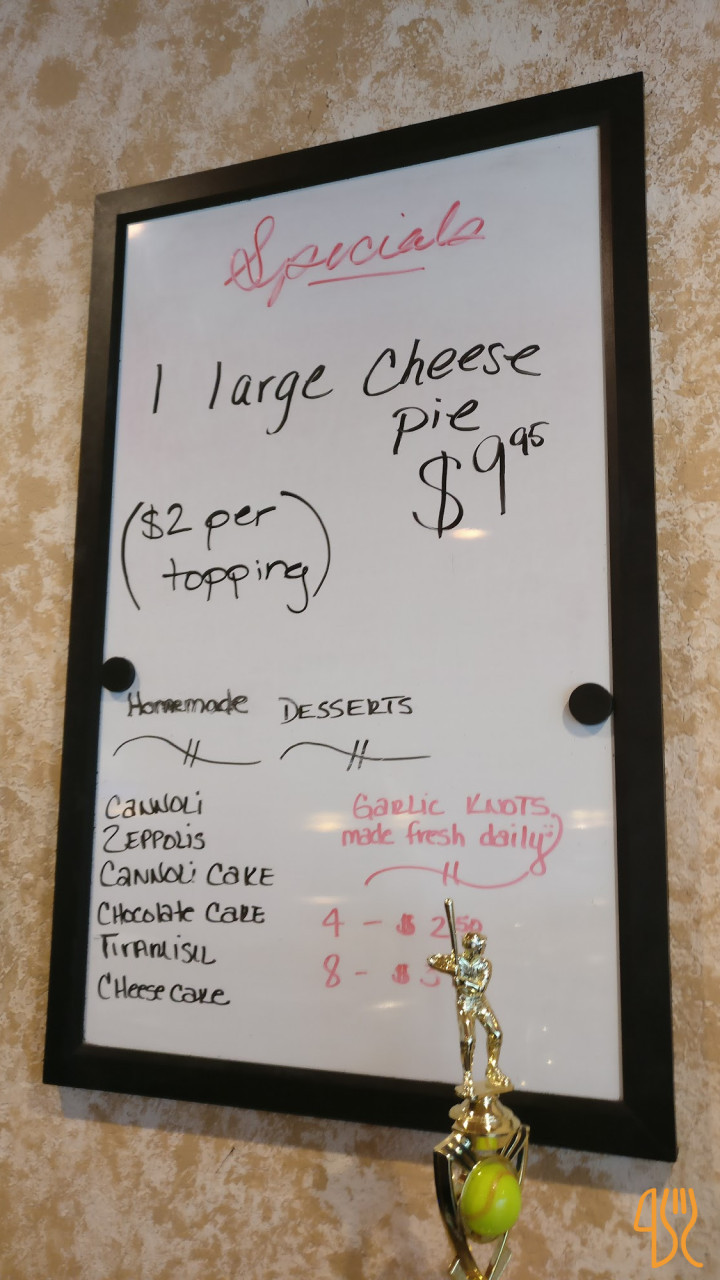 Specials
1 large Cheese
pie
$9.95
($2 per
topping)
Homemade DESSERTS
CANNOLI
ZEPPOLIS
CANNOLI CAKE
CHOCOlate CAKE
TIRAMISU
CHeese CaKe
GARLIC KNOTS,
made fresh daily
4 - $ 2.50
8 - $